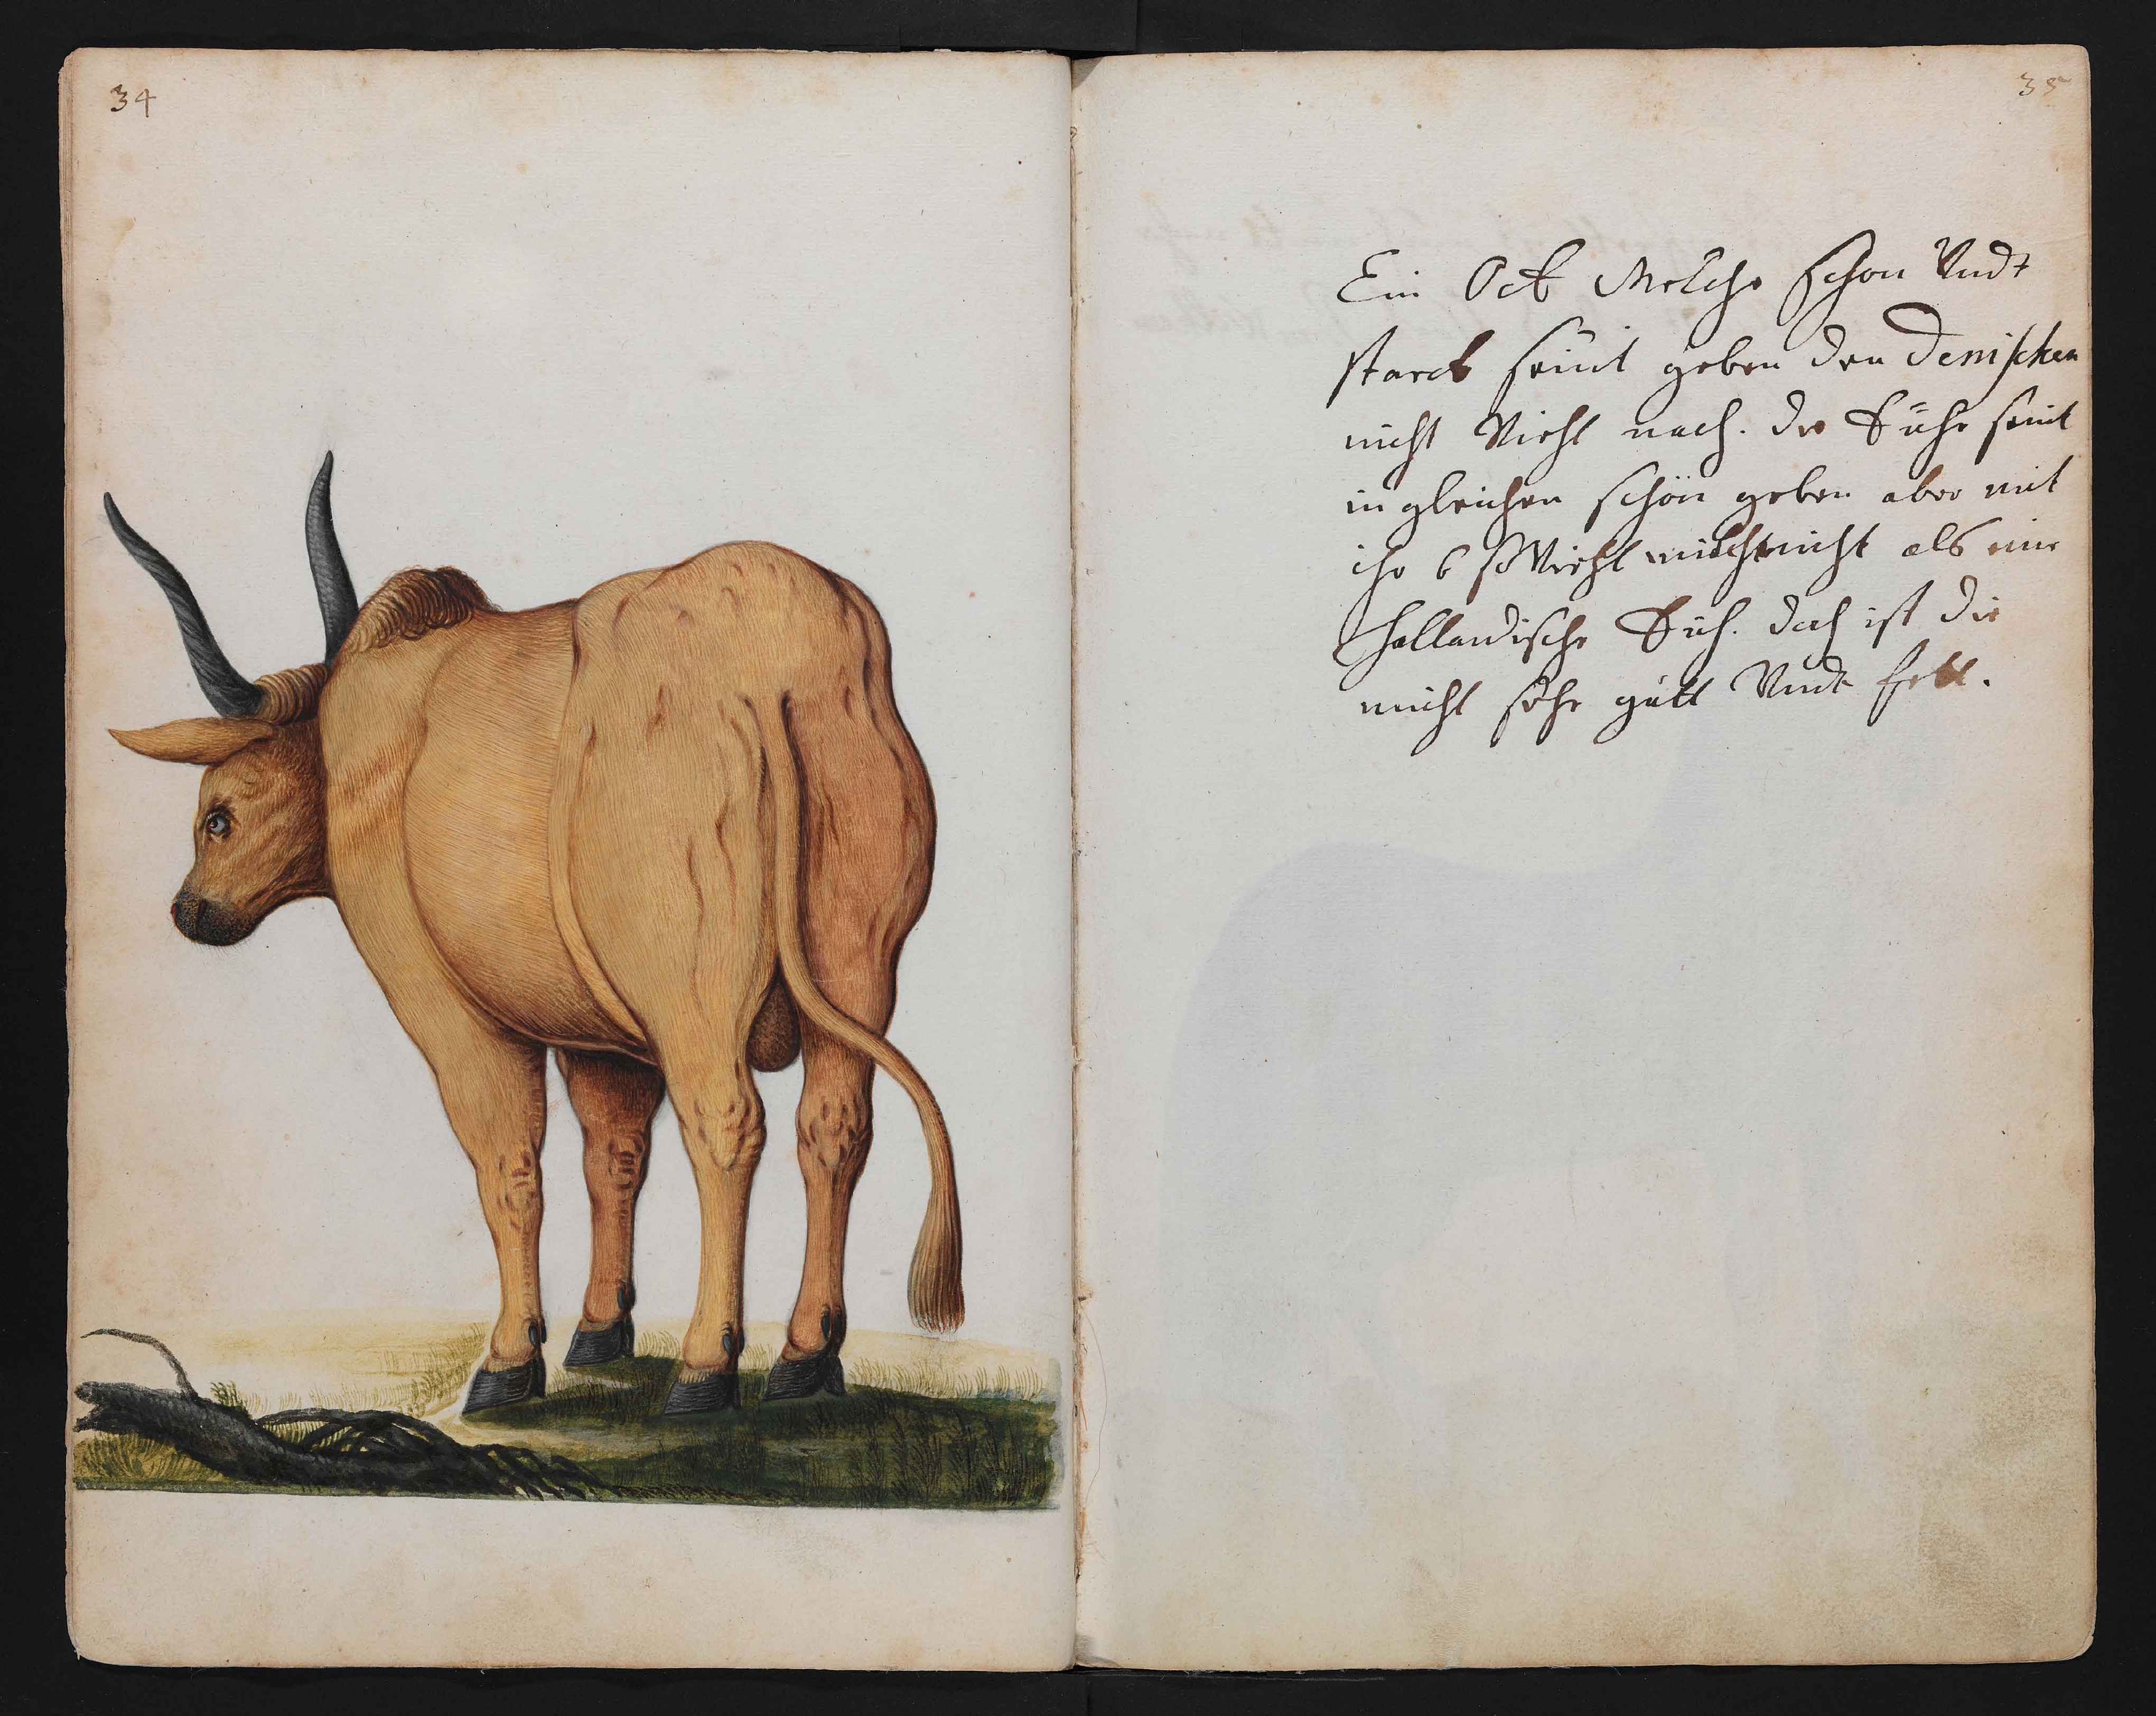 34
35
Ein Ock Melche schon Vndt
starck seint geben den Denischen
nicht Viehl nach. die Kühe seint
in gleichen schön geben aber mit
ihr 6 so Viehl milch nicht als eine
hollandische Kuh. doch ist die
milch sehr gutt Vndt fett.